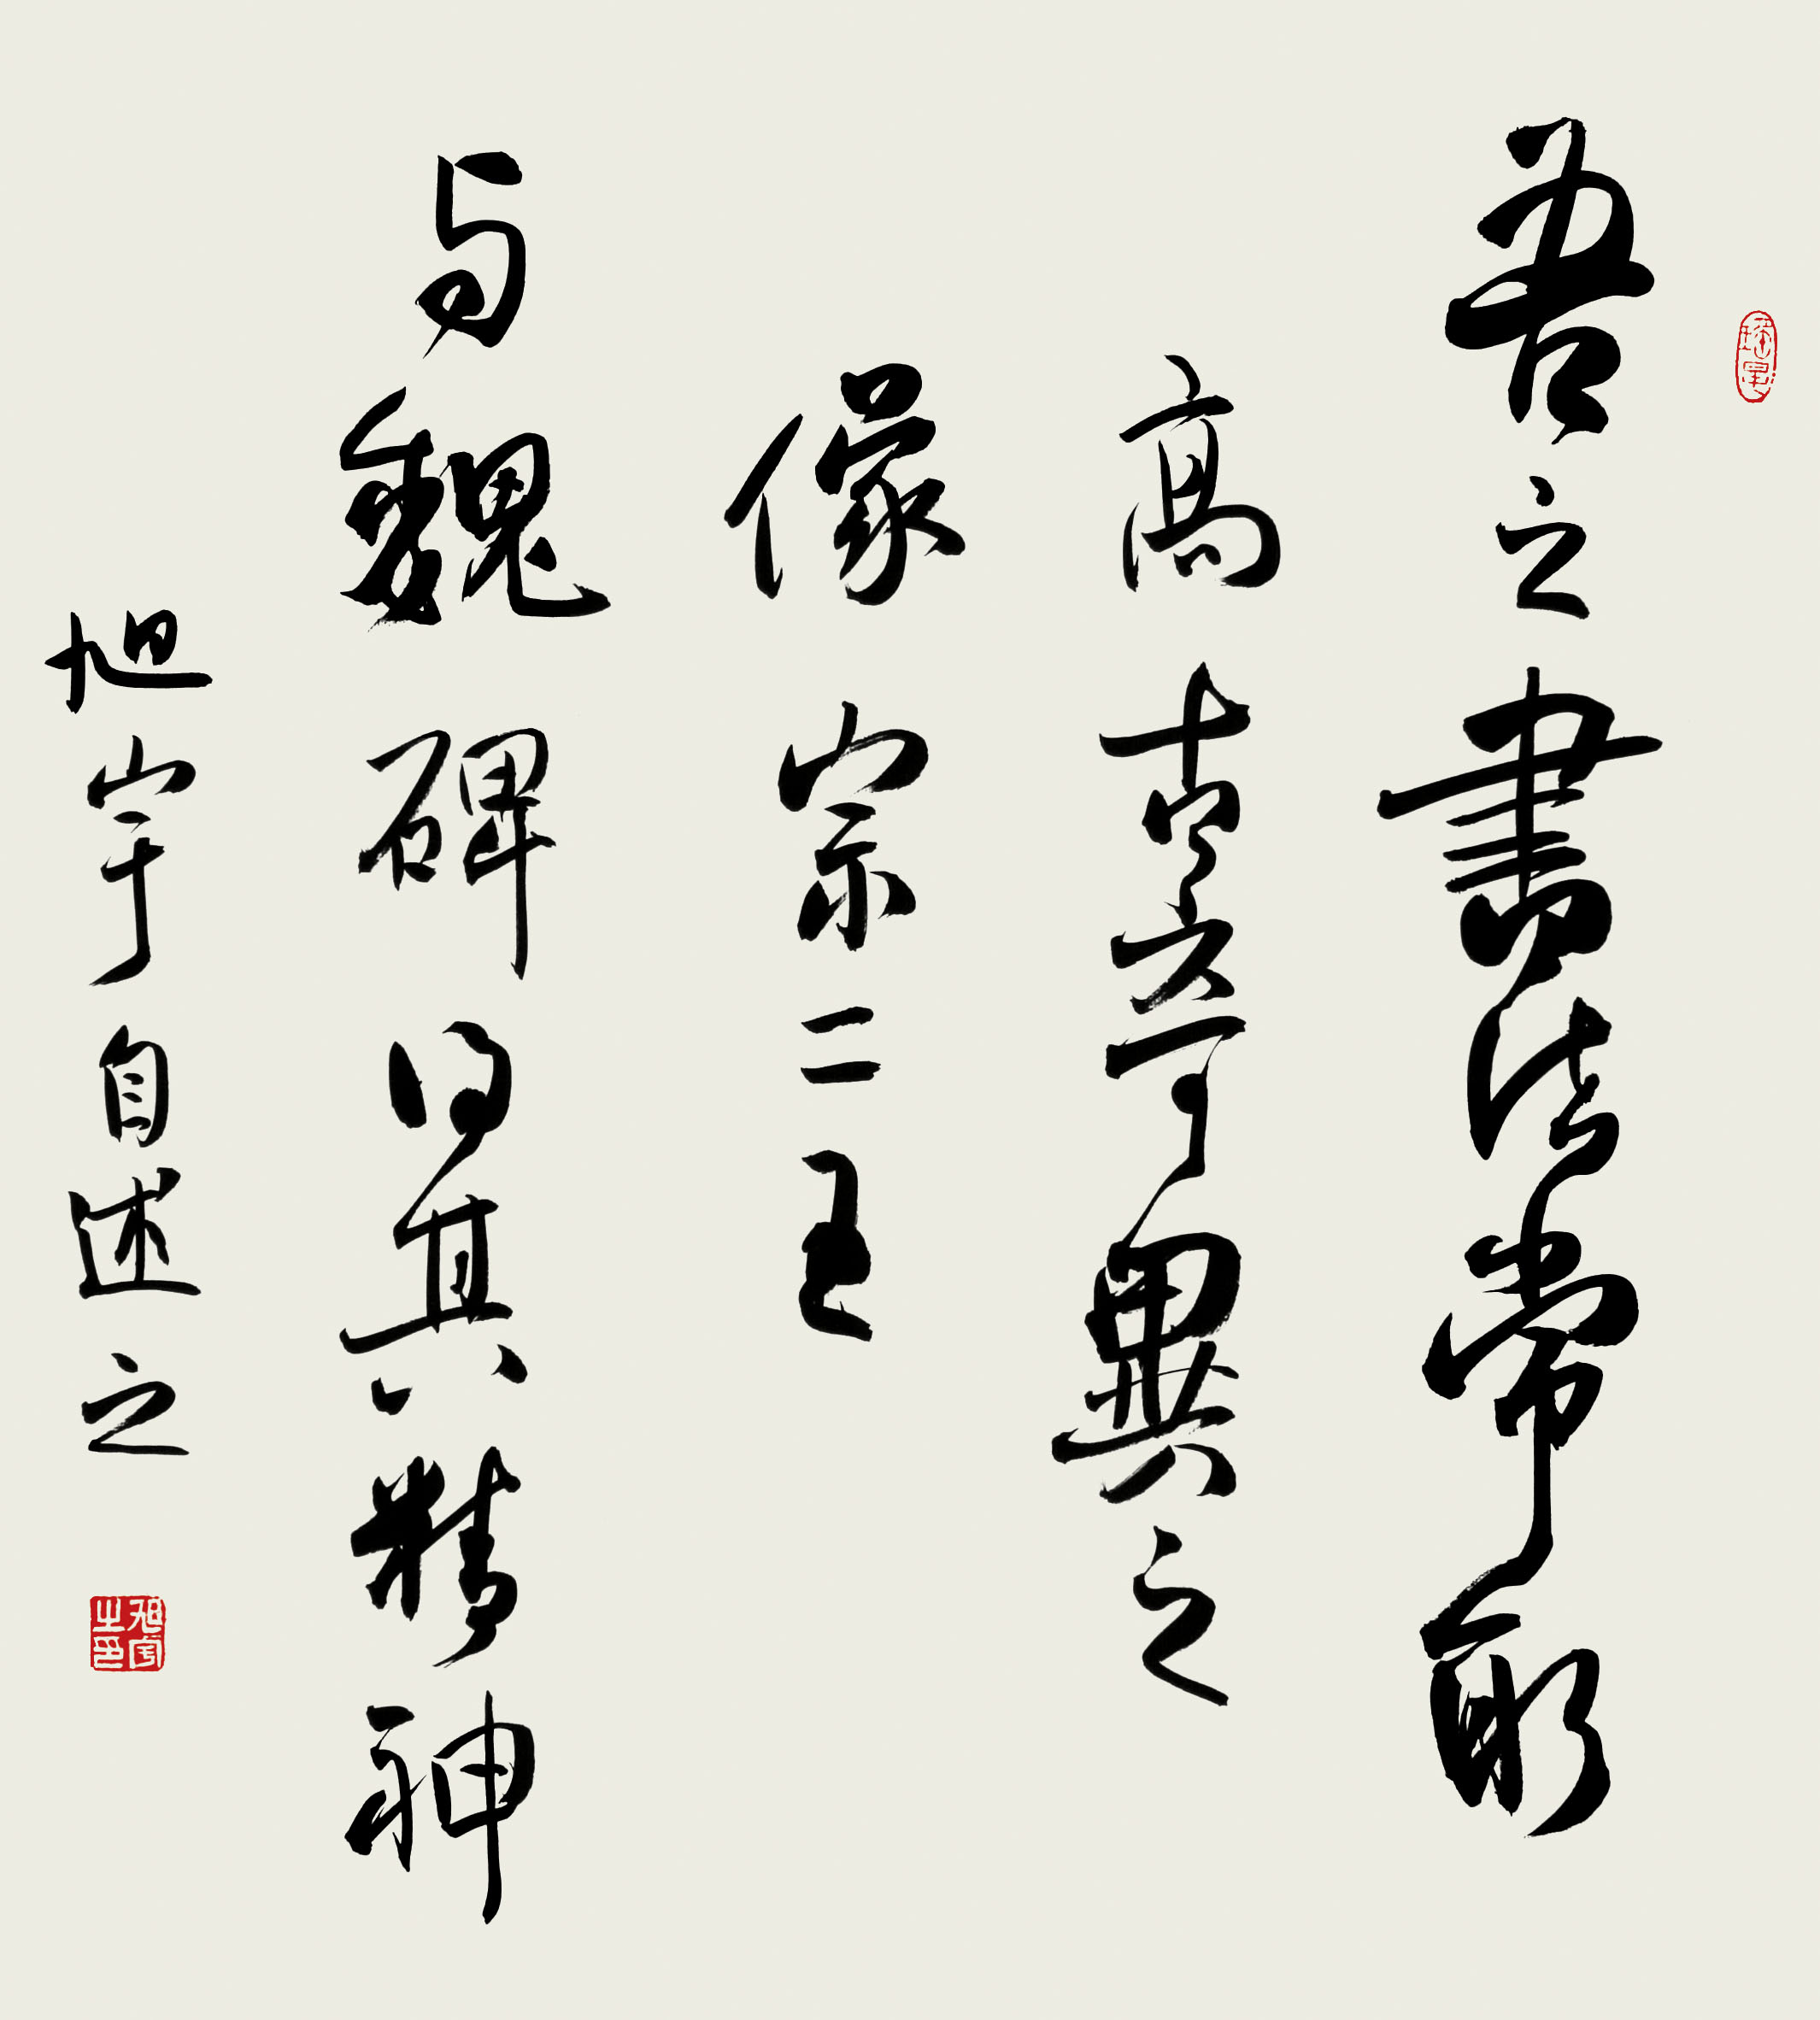 吾之書法常取
高古奇異之
像宗二王
与魏碑其精神
旭宇自述之
旭宇之印